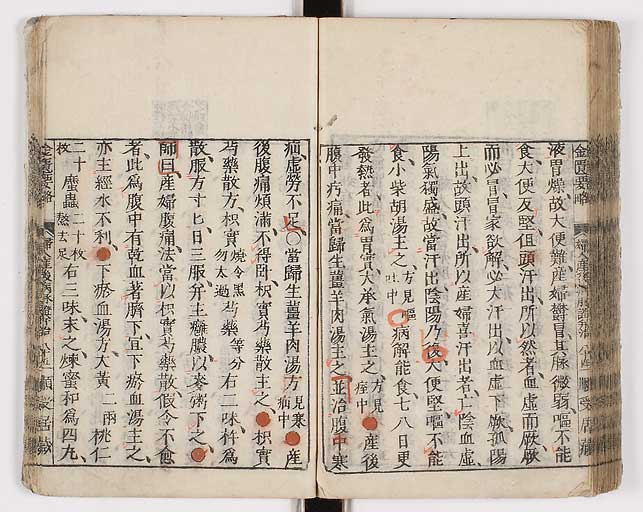 液胃燥故大便難產婦鬱冒其脉微弱嘔不能
食大便反堅但頭汗出所以然者血虛而厥厥
而必冒冒家欲解必大汗出以血虛下厥孤陽
上出故頭汗出所以產婦喜汗出者亡陰血虛
陽氣獨盛故當汗出陰陽乃復大便堅嘔不能
食小柴胡湯主之方見嘔吐中病解能食七八日更
發熱者此為胃實大承氣湯主之方見痓中產後
腹中㽲痛當歸生薑羊肉湯主之並治腹中寒
疝虛勞不足〇當歸生薑羊肉湯方見寒疝中產
後腹痛煩滿不得臥枳實芍藥散主之枳實
芍藥散方枳實燒令黑勿太過芍藥等分右二味杵為
散服方寸匕日三服并主癰膿以麥粥下之
師曰產婦腹痛法當以枳實芍藥散假令不愈
者此為腹中有乾血著臍下宜下瘀血湯主之
亦主經水不利下瘀血湯方大黃二兩桃仁
二十枚䗪蟲二十枚熬去足右三味末之煉蜜和為四丸
金匱要略